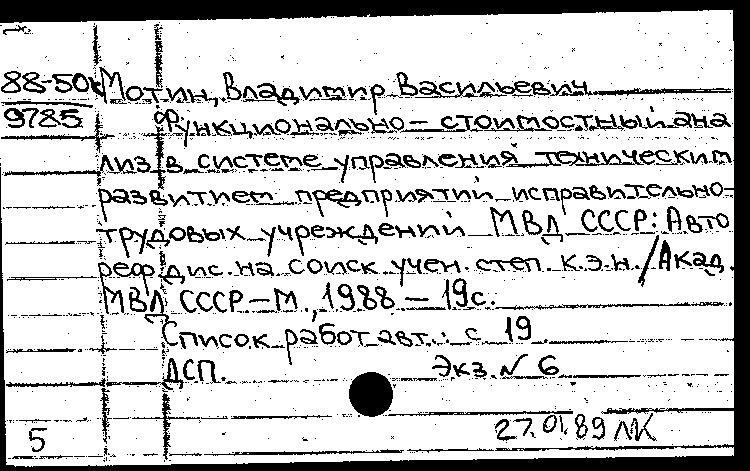 88-50к Мотин, Владимир Васильевич
9785 Функционально-стоимостный ана
лиз в системе управления техническим
развитием предприятий исправительно-
трудовых учреждений МВД СССР: Авто
реф. дис. на соиск учен. степ. к.э.н./Акад.
МВД СССР-М., 1988 - 19с.
Список работ авт.: с 19
ДСП. Экз. № 6
5 27.01.89 ЛК